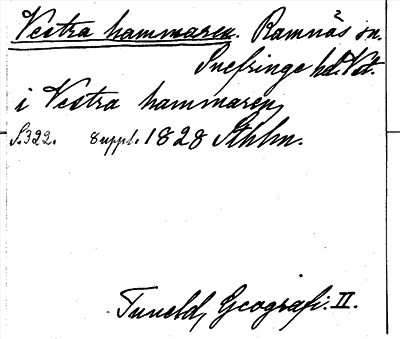 Vestra hammaren. Ramnäs sn.
Snefringe hd. Vstm.
i Vestra hammaren
S. 322. Suppl. 1828 Sthlm.
Tuneld, Geografi. II.